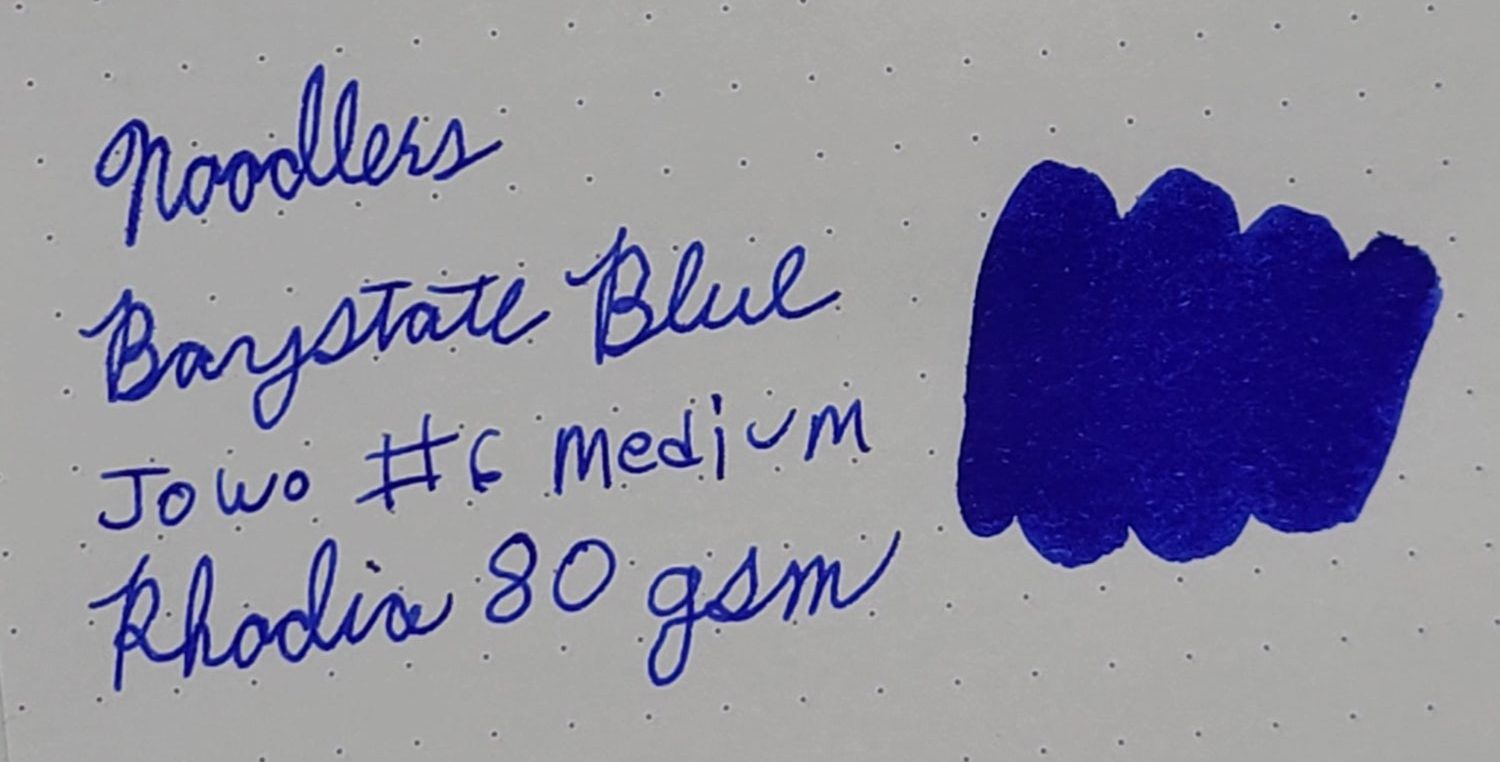 Noodlers
Baystate Blue
Jowo #6 medium
Rhodia 80 gsm